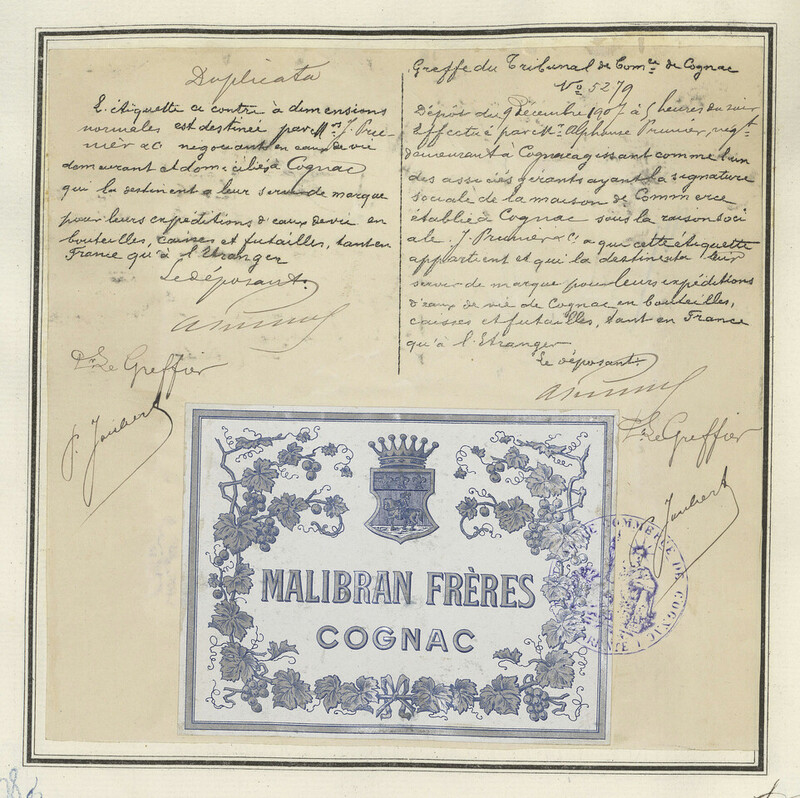 Duplicata
L'étiquette ci contre à dimensions
normales est destinée par Mrs J. Pru-
nier & Co négociants en eaux de vie
demeurant et domiciliés à Cognac
qui la destinent a leur servir de marque
pour leurs expéditions d'eaux de vie en
bouteilles, caisses et futailles, tant en
France qu'à l'Etranger
Le déposant.
Pr. Le Greffier
P. Joubert
Greffe du Tribunal de Comce de Cognac
No 5279
Dépôt du 9 Décembre 1907 à 5 heures du soir
Effectué par Mr. Alphonse Prunier, négt.
demeurant à Cognac agissant comme l'un
des associés gérants ayant la signature
sociale de la maison de Commerce
établie à Cognac sous la raison soci
ale J. Prunier & Co a qui cette étiquette
appartient et qui la destine à leur
servir de marque pour leurs expéditions
d'eaux de vie de Cognac en bouteilles,
caisses et futailles, tant en France
qu'à l'Etranger
Le déposant.
Pr. Le Greffier
Joubert
MALIBRAN FRÈRES
COGNAC
DE COMMERCE DE COGNAC